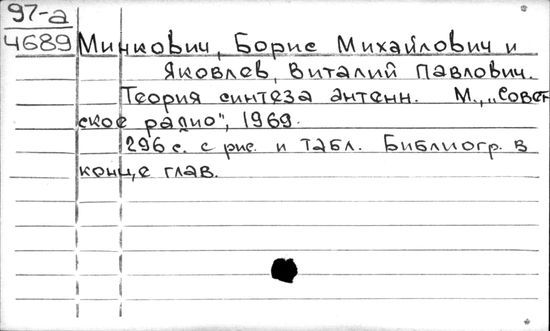 97-а
4689
Минкович, Борис Михайлович и
Яковлев, Виталий Павлович.
Теория синтеза антенн. М., „Совет-
ское радио", 1969.
296 с. с рис. и табл. Библиогр. в
конце глав.